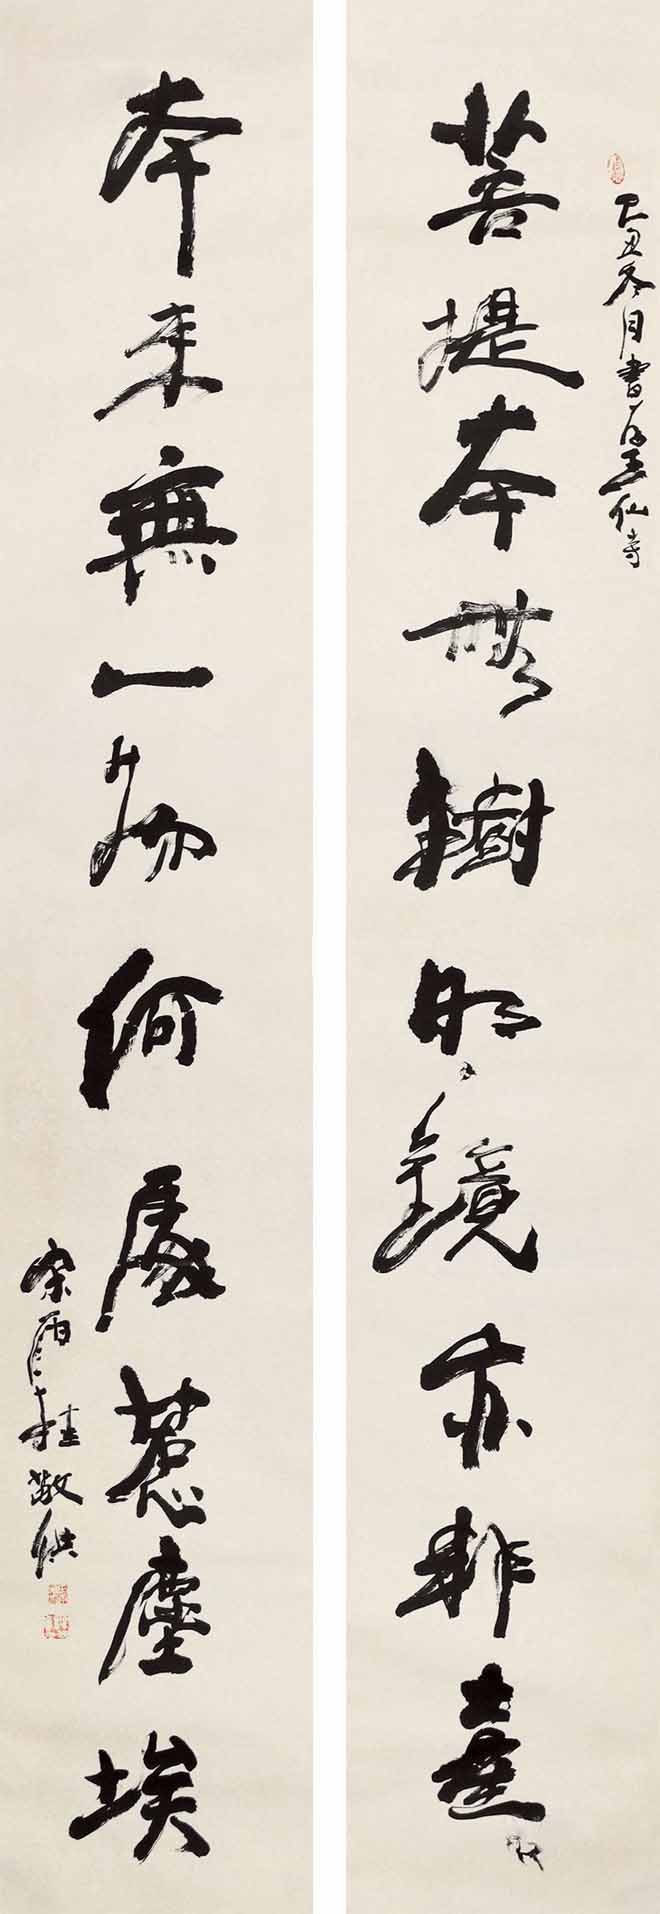 己丑冬月書於玉仙寺
菩提本無樹明鏡亦非臺
本来無一物何處惹塵埃
宋雨桂敬供